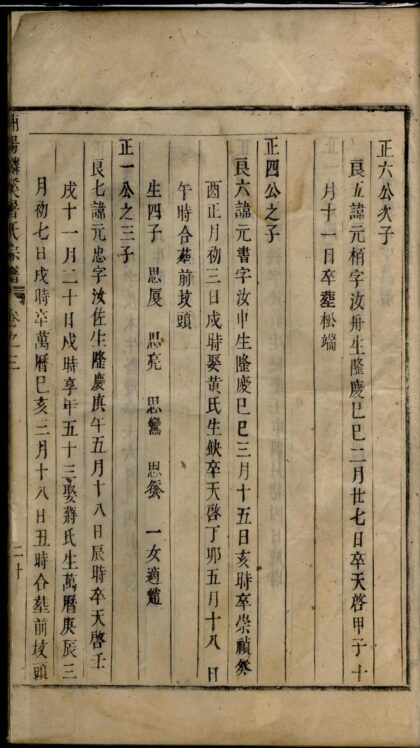 正六公次子
良五諱元梢字汝舟生隆慶己巳二月廿七日卒天啓甲子十
一月十一日卒塟松端
正四公之子
良六諱元書字汝申生隆慶己巳三月十五日亥時卒崇禎癸
酉正月初三日戌時娶黃氏生缺卒天啓丁卯五月十八日
午時合塟前坟頭
生四子 思廈 思亮 思鸞 思 一女適
正一公之三子
良七諱元忠字汝佐生隆慶庚午五月十八日辰時卒天啓壬
戌十一月二十日戌時享年五十三娶蔣氏生萬曆庚辰三
月初七日戌時卒萬曆己亥三月十八日丑時合塟前坟頭
陽 氏宗譜 卷之三 二十